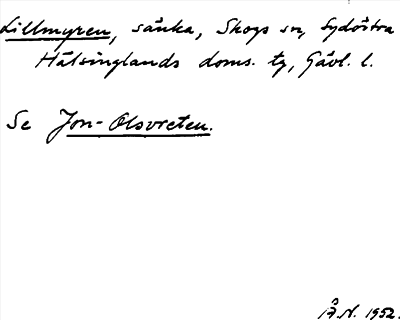 Lillmyren, sänka, Skogs sn, Sydöstra
Hälsinglands doms. tg, Gävl. l.
Se Jon-Olsvreten.
Å.N. 1952.